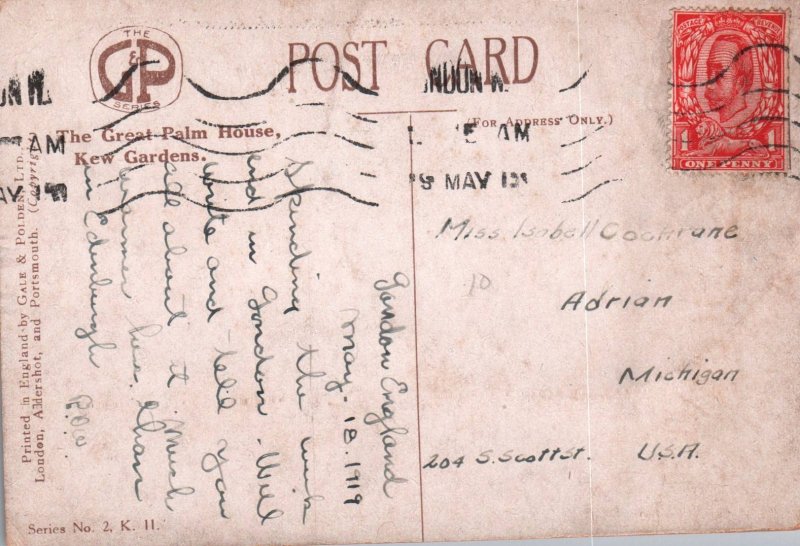 THE
G&P
SERIES
POST CARD
(FOR ADDRESS ONLY.)
The Great Palm House,
Kew Gardens.
London England
May. 18. 1919
Spending the
end in London. Will
write and tell you
all about it. Much
warmer here than
in Edinburgh
Miss. Isabell Cochrane
10
Adrian
Michigan
204 S. Scott St. U.S.A.
POSTAGE REVENUE
1 1
ONE PENNY
AM
MAY
AM
MAY
Printed in England by GALE & POLDEN, LTD.,
London, Aldershot, and Portsmouth. (Copyright
Series No. 2, K. 11.